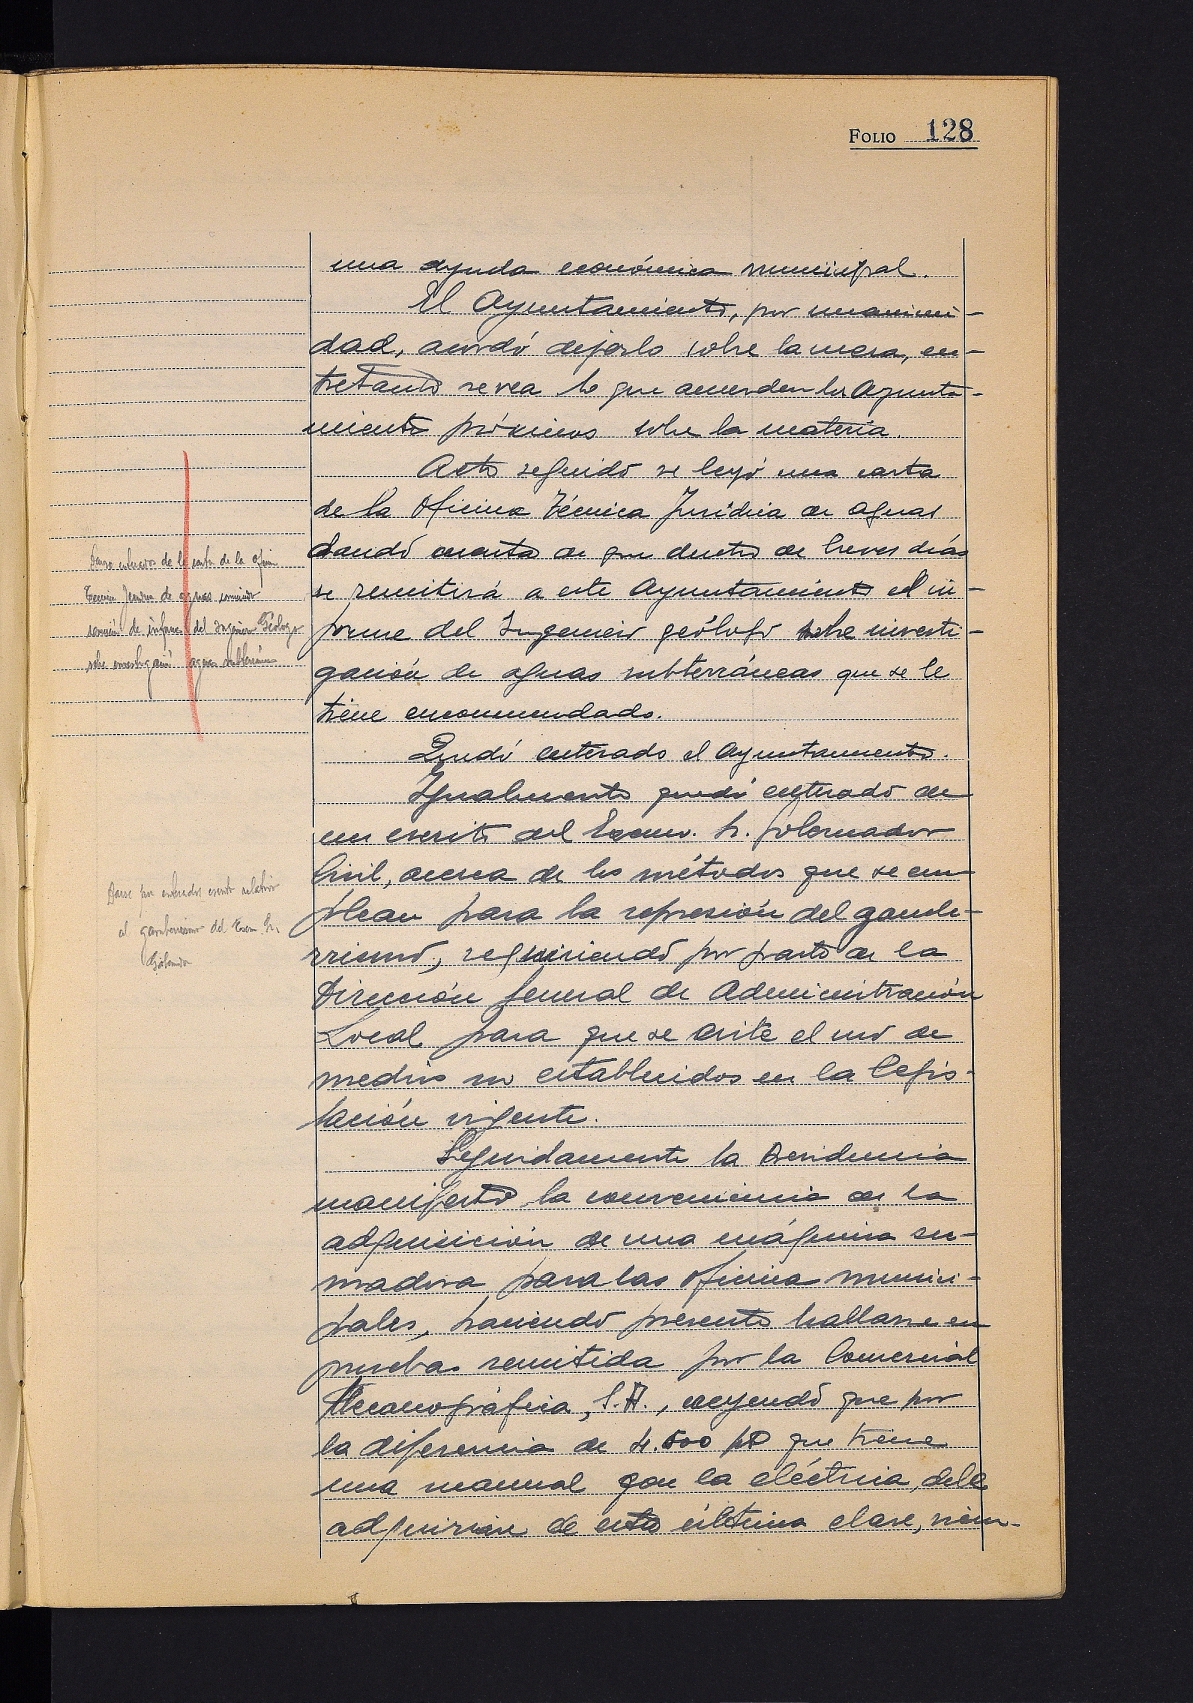 FOLIO 128
una ayuda económica municipal.
El Ayuntamiento, por unanimi-
dad, acordó dejarlo sobre la mesa, en-
tretanto se vea lo que acuerden los Ayunta-
mientos próximos sobre la materia.
Acto seguido se leyó una carta
de la Oficina Técnica Jurídica de aguas
dando cuenta de que dentro de breves días
se remitirá a este Ayuntamiento el in-
forme del Ingeniero geólogo sobre investi-
gación de aguas subterráneas que se le
tiene encomendado.
Quedó enterado el Ayuntamiento.
Igualmente quedó enterado de
un escrito del Excmo. Sr. Gobernador
Civil, acerca de los métodos que se em-
plean para la represión del gambe-
rrismo, requiriendo por parte de la
Dirección General de Administración
Local para que se evite el uso de
medios no establecidos en la legis-
lación vigente.
Seguidamente la Presidencia
manifestó la conveniencia de la
adquisición de una máquina su-
madora para las oficinas munici-
pales, haciendo presente hallarse en
prueba remitida por la Comercial
Mecanográfica, S.A., creyendo que por
la diferencia de 4.500 pts que tiene
una manual con la eléctrica, debe
adquirirse de esta última clase, siem-
Darse enterados de la carta de la ofici
Técnica Jurídica de aguas
de informe del Ingeniero Geólogo
sobre investigación aguas subterráneas
Darse por enterados escrito relativo
al gamberrismo del Excm. Sr.
Gobernador